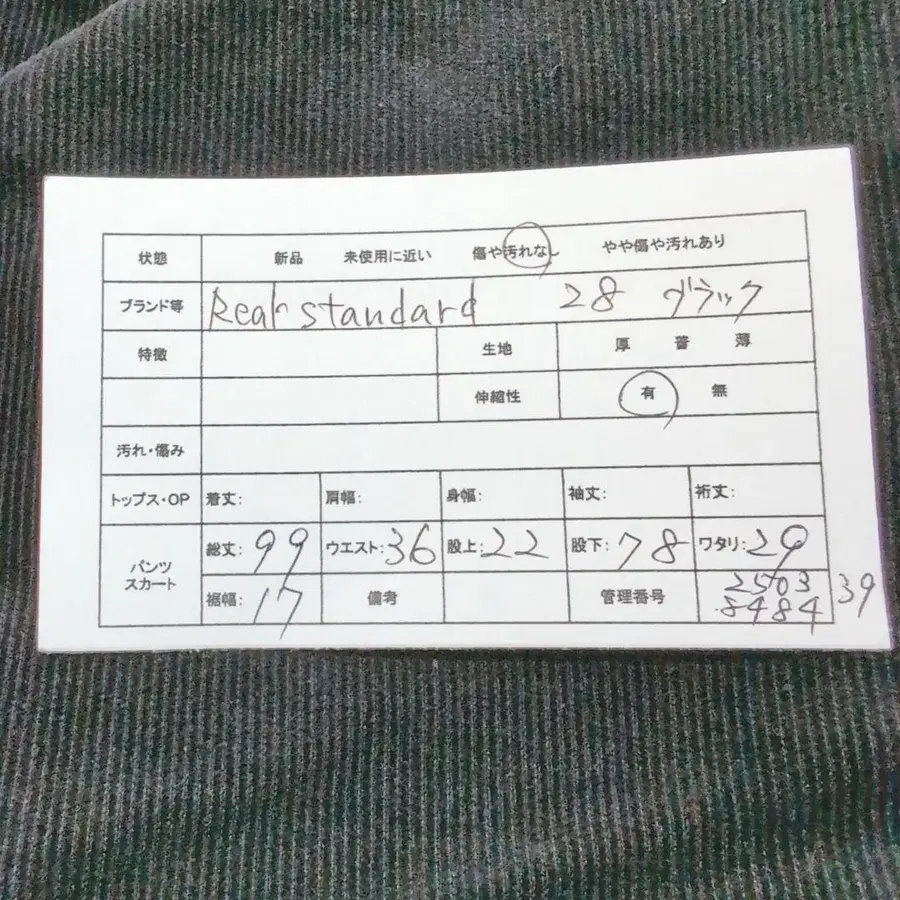 状態 新品 未使用に近い 傷や汚れなし やや傷や汚れあり
ブランド等 Real standard 28 ブラック
特徴 生地 厚 普 薄
伸縮性 有 無
汚れ・傷み
トップス・OP 着丈: 肩幅: 身幅: 袖丈: 裄丈:
パンツ スカート 総丈:99 ウエスト:36 股上:22 股下:78 ワタリ:29
裾幅:17 備考 管理番号 2503
8484 39